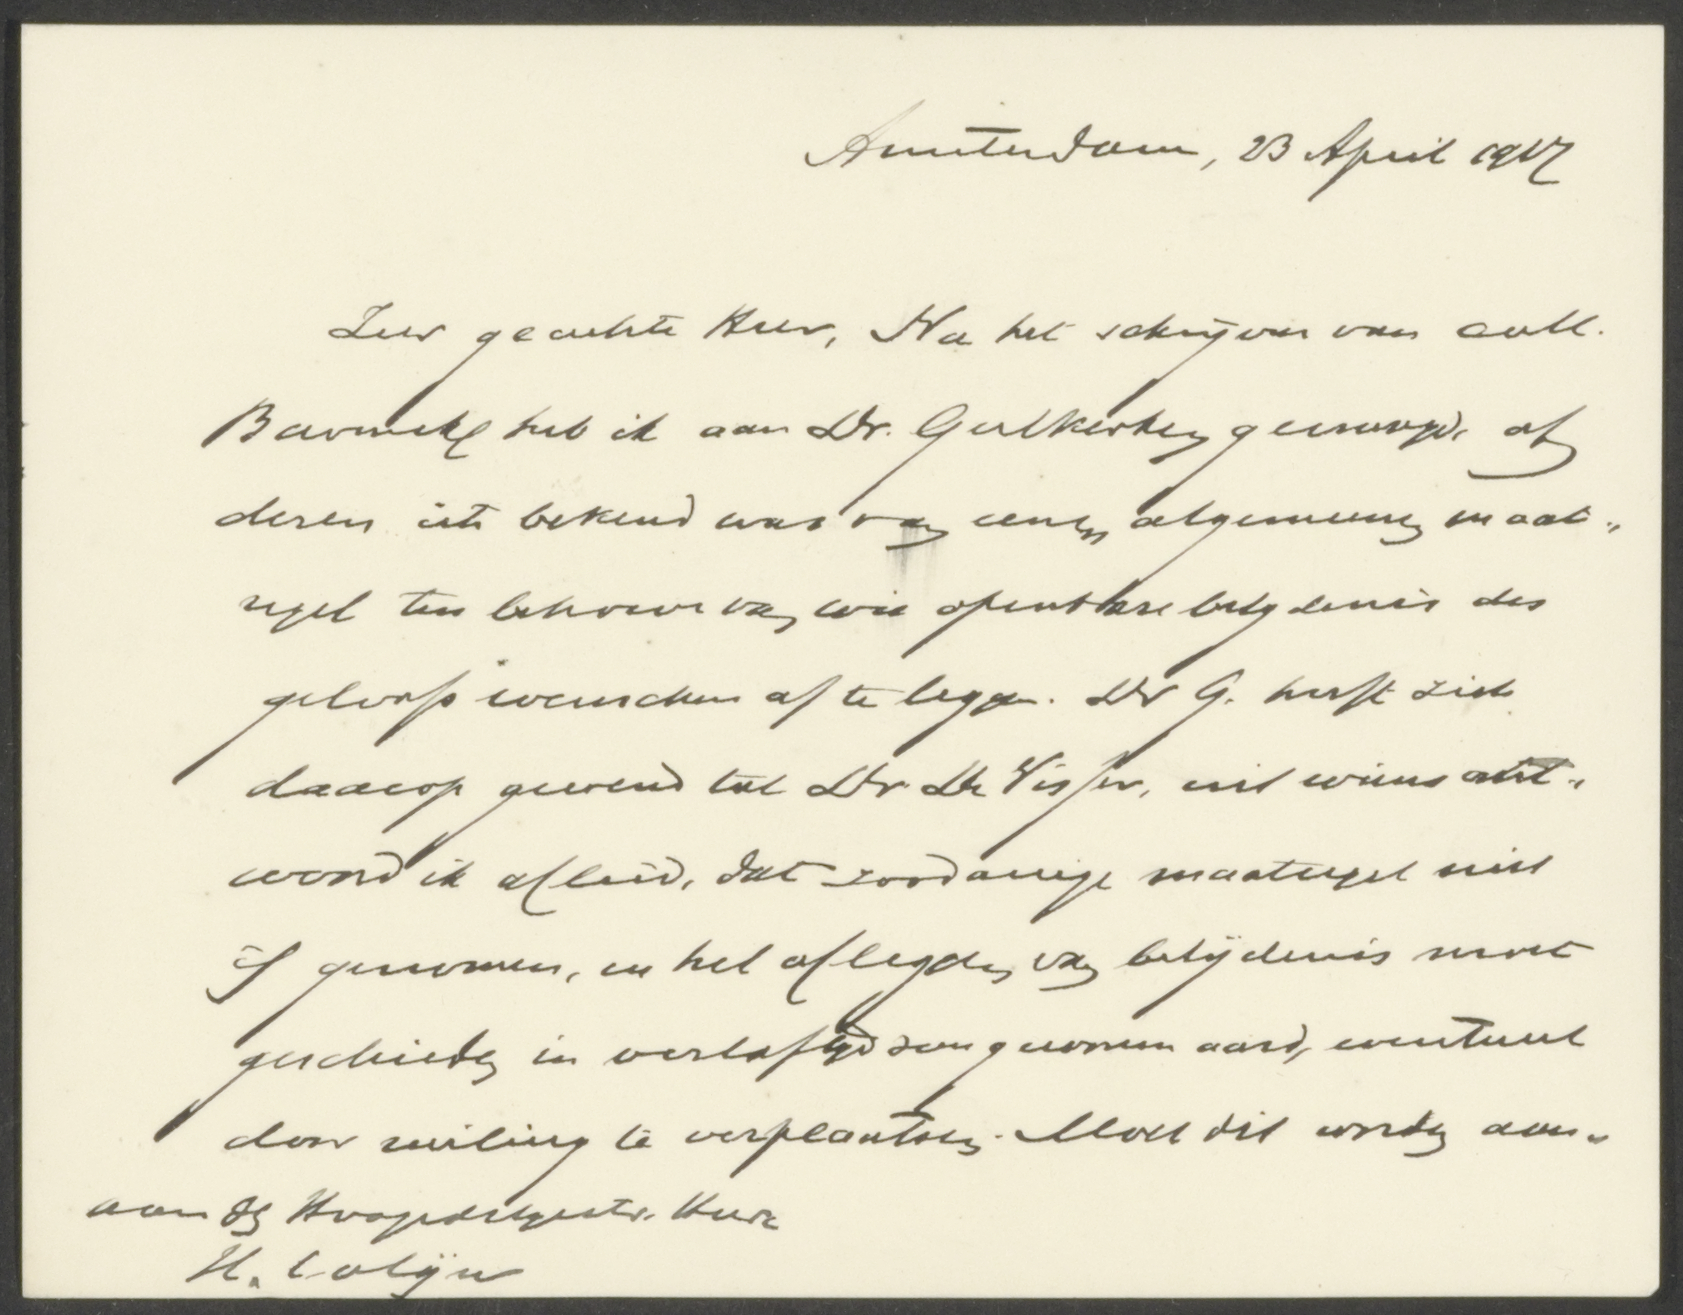 Amsterdam, 23 April 1917
Zeer geachte Heer, Na het schrijven van coll.
Bavinck heb ik aan Dr. Gerlkerken gevraagd, of
dezen iets bekend was van eenen algemeenen maat„
regel ten behoeve van wie openbare belijdenis des
geloofs wenschen af te leggen. Dr G. heeft zich
daarop gewend tot Dr. De Visser, uit wiens ant„
woord ik afleid, dat zoodanige maatregel niet
is genomen, en het afleggen van belijdenis moet
geschieden in verloftijd van gewonen aard, eventueel
door ruiling te verplaatsen. Moet dit worden aan„
aan den Hoogedelgestr. Heer
H. Colijn